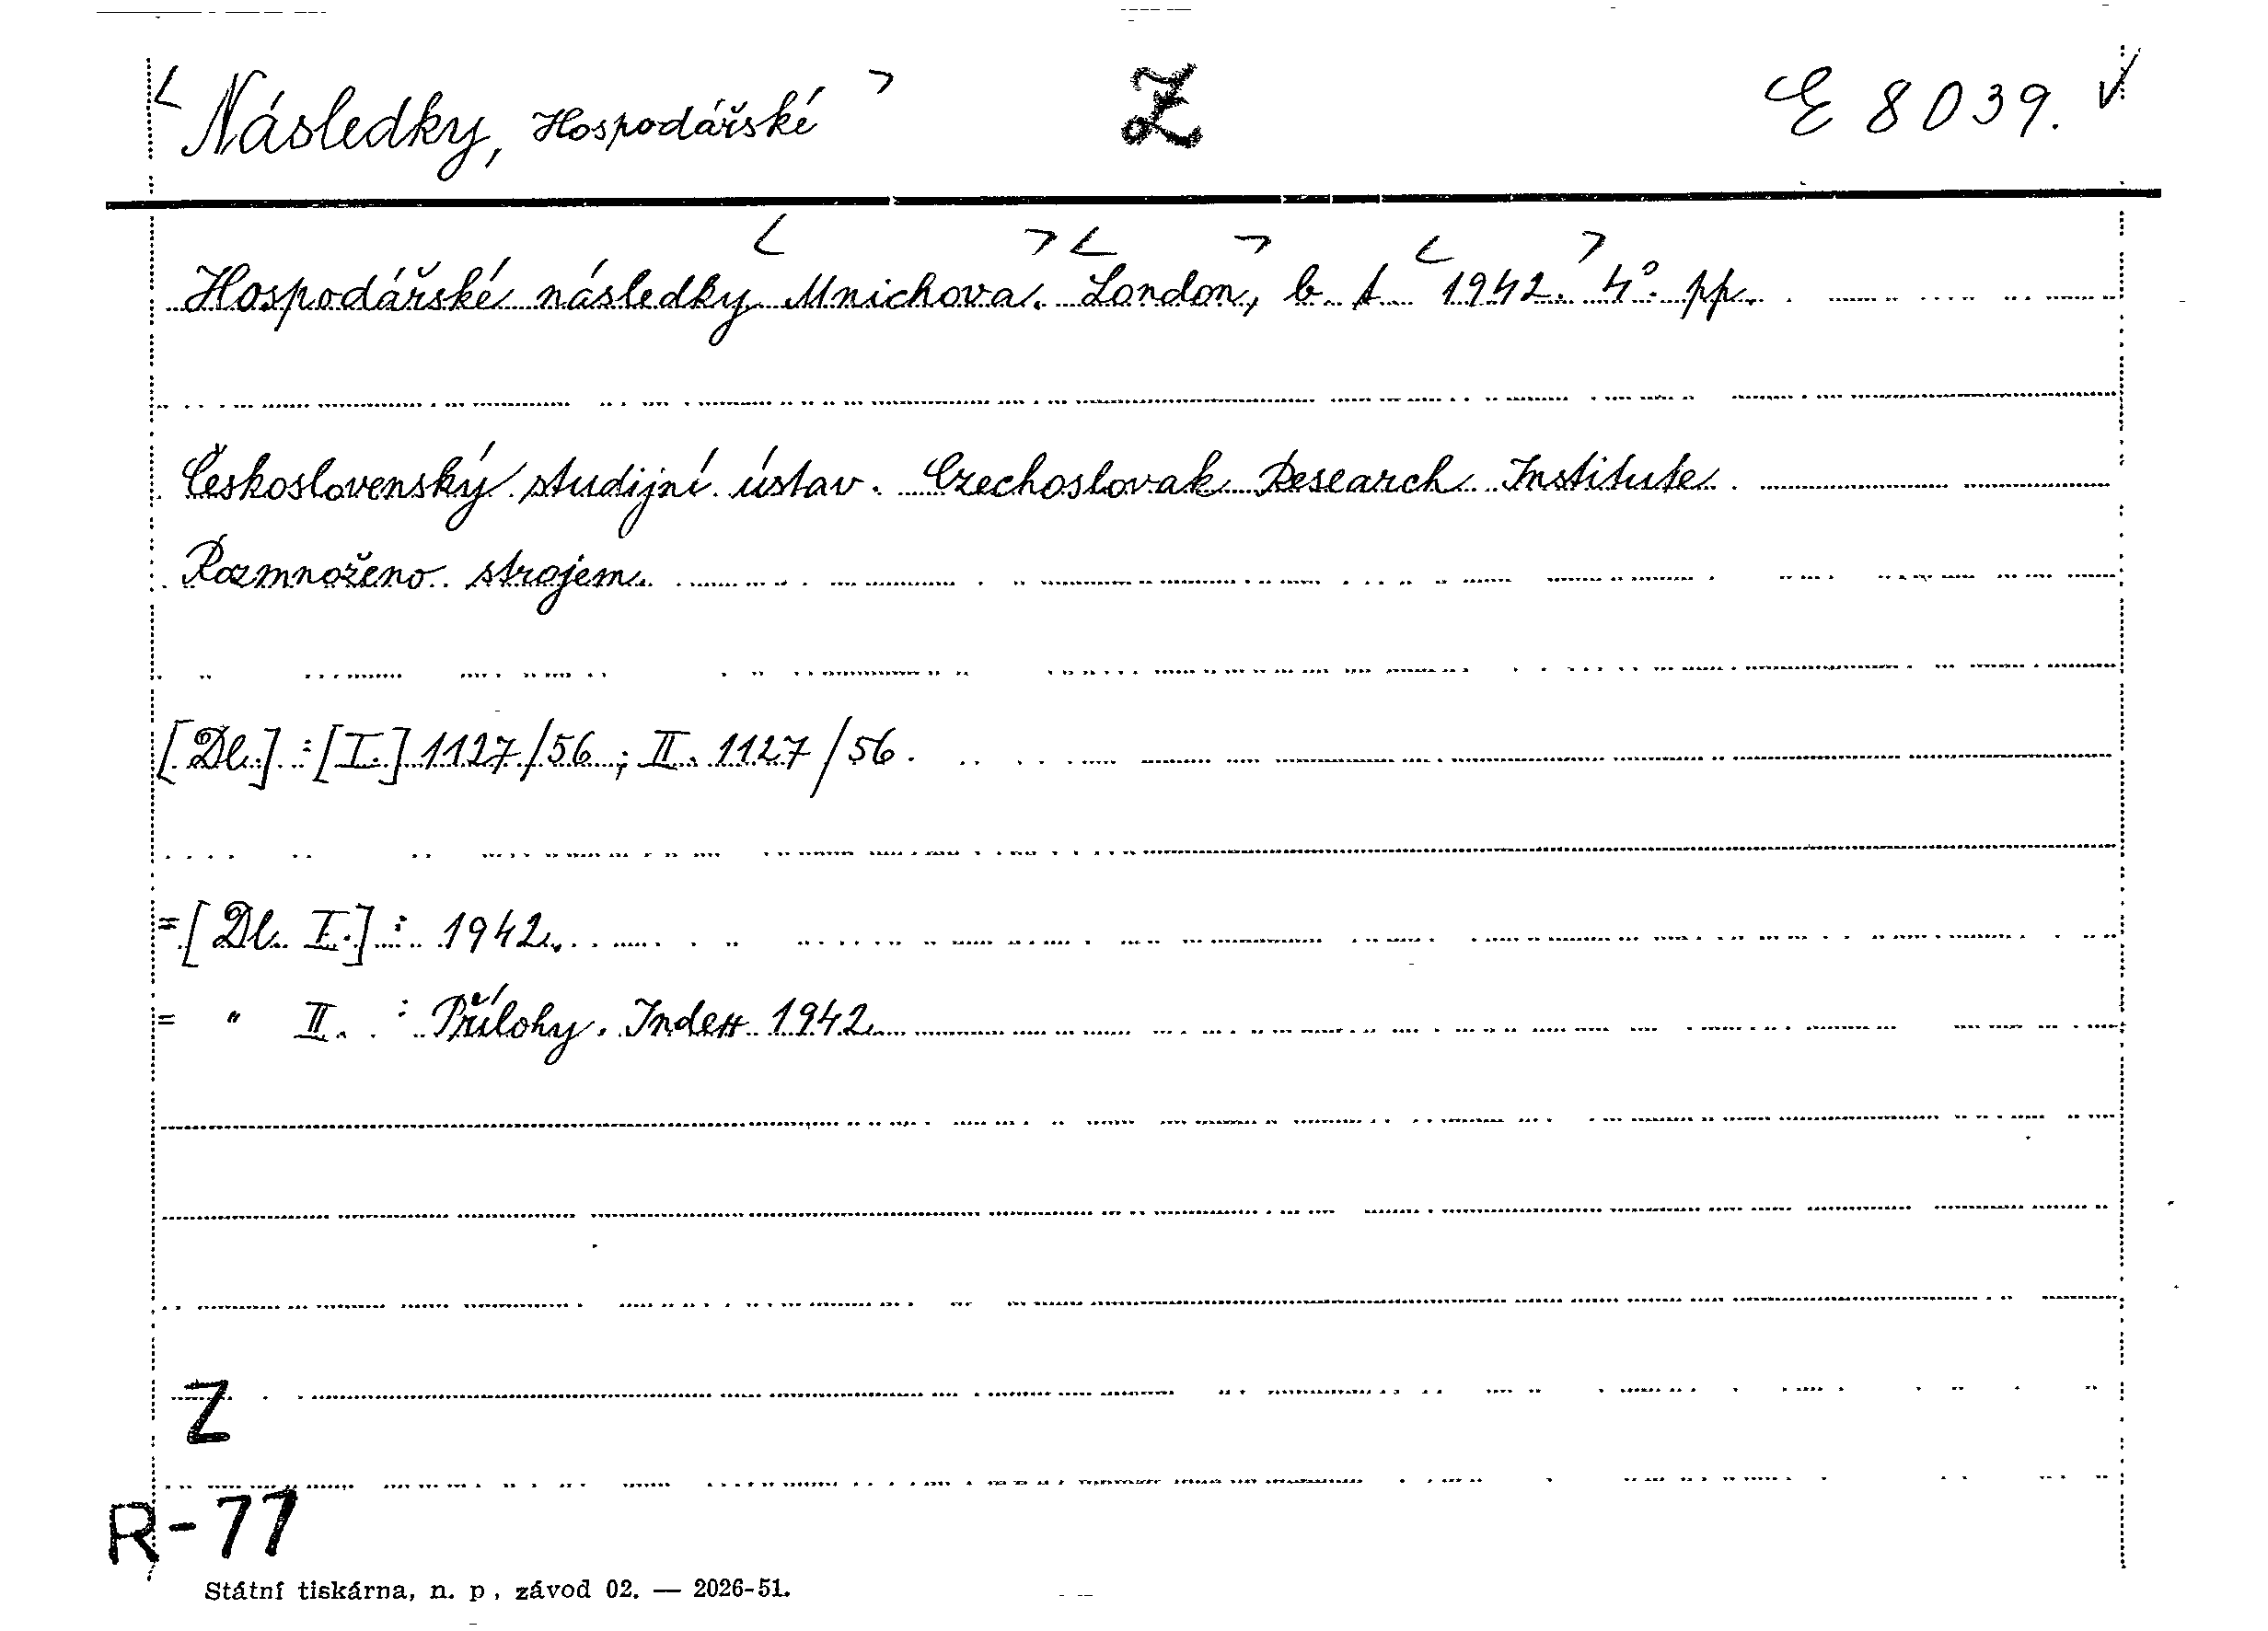 < Následky, Hospodářské > Z E 8039. √
Hospodářské následky < Mnichova. > < London, > b. t. < 1942. > 4°. pp.
Československý studijní ústav. Czechoslovak Research Institute.
Rozmnoženo strojem.
[Dl.] : [I.] 1127/56 ; II. 1127/56.
= [Dl. I.] : 1942.
= " II. : Přílohy. Index 1942.
Z
R-77
Státní tiskárna, n. p., závod 02. — 2026-51.